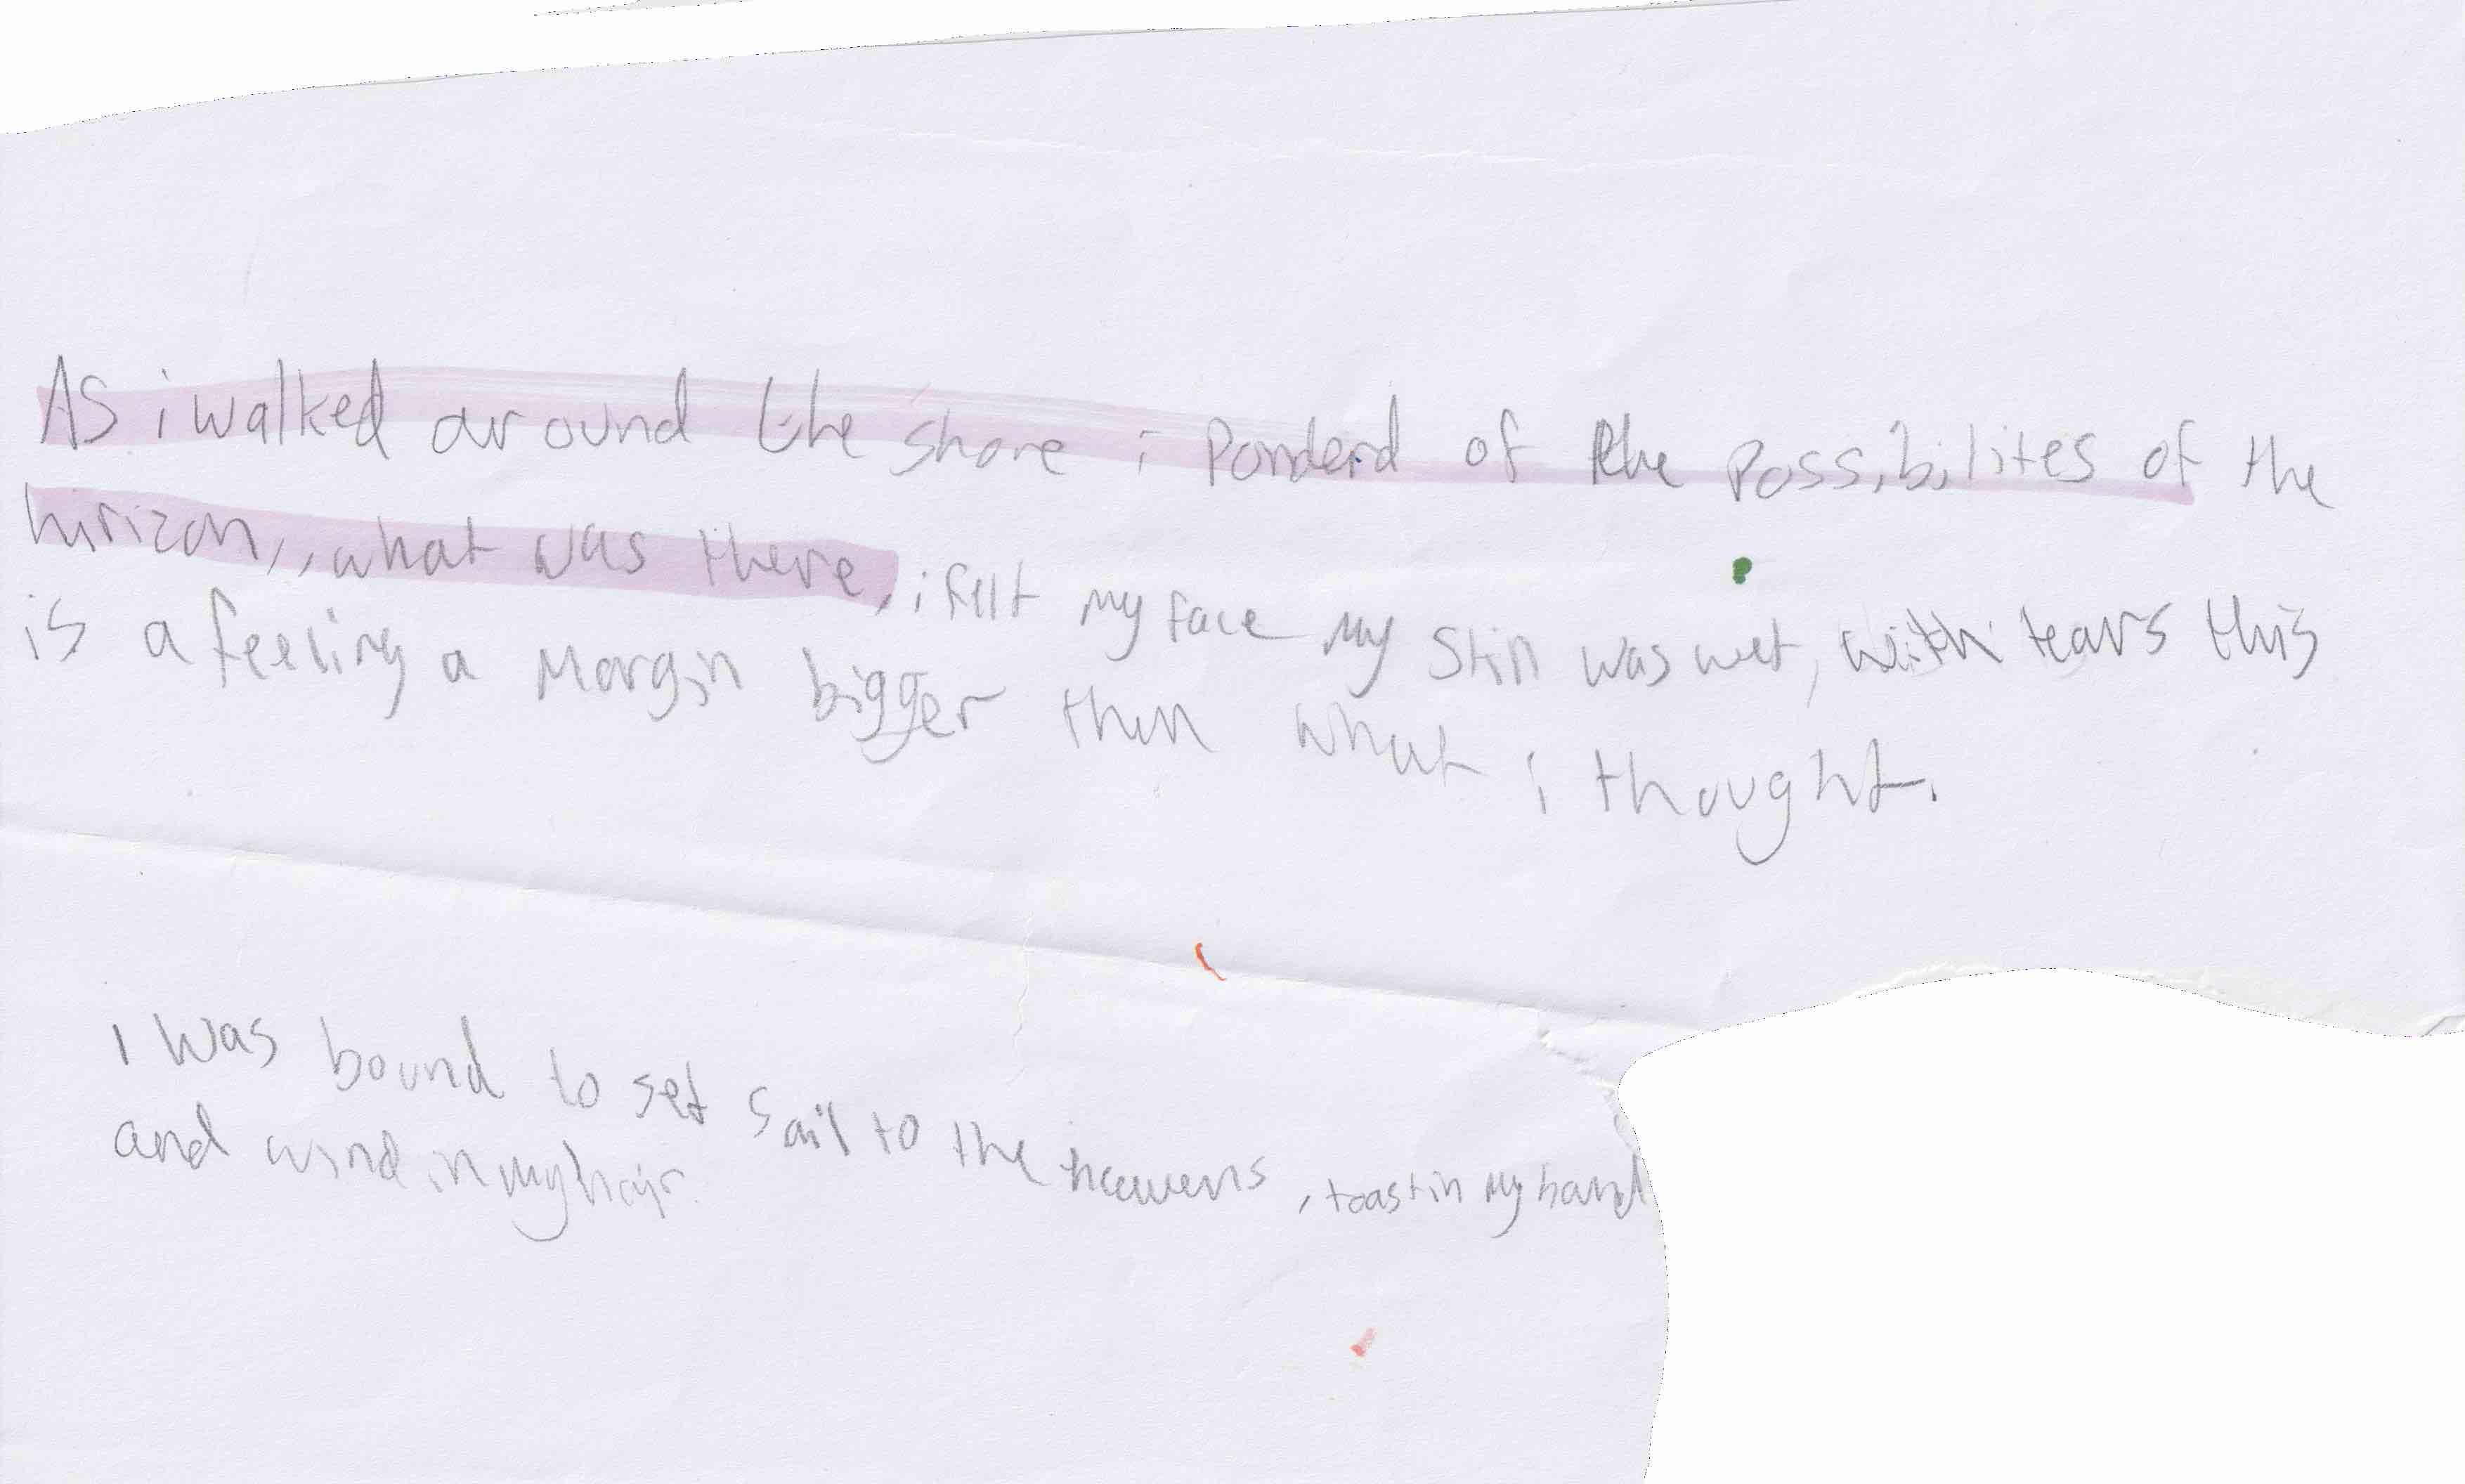 As i walked around the shore i Ponderd of the Possibilites of the
hirizon,, what was there, i felt my face my skin was wet, with tears this
is a feeling a Margin bigger then what i thought.
I was bound to set sail to the heavens, toast in my hand
and wind in my hair.